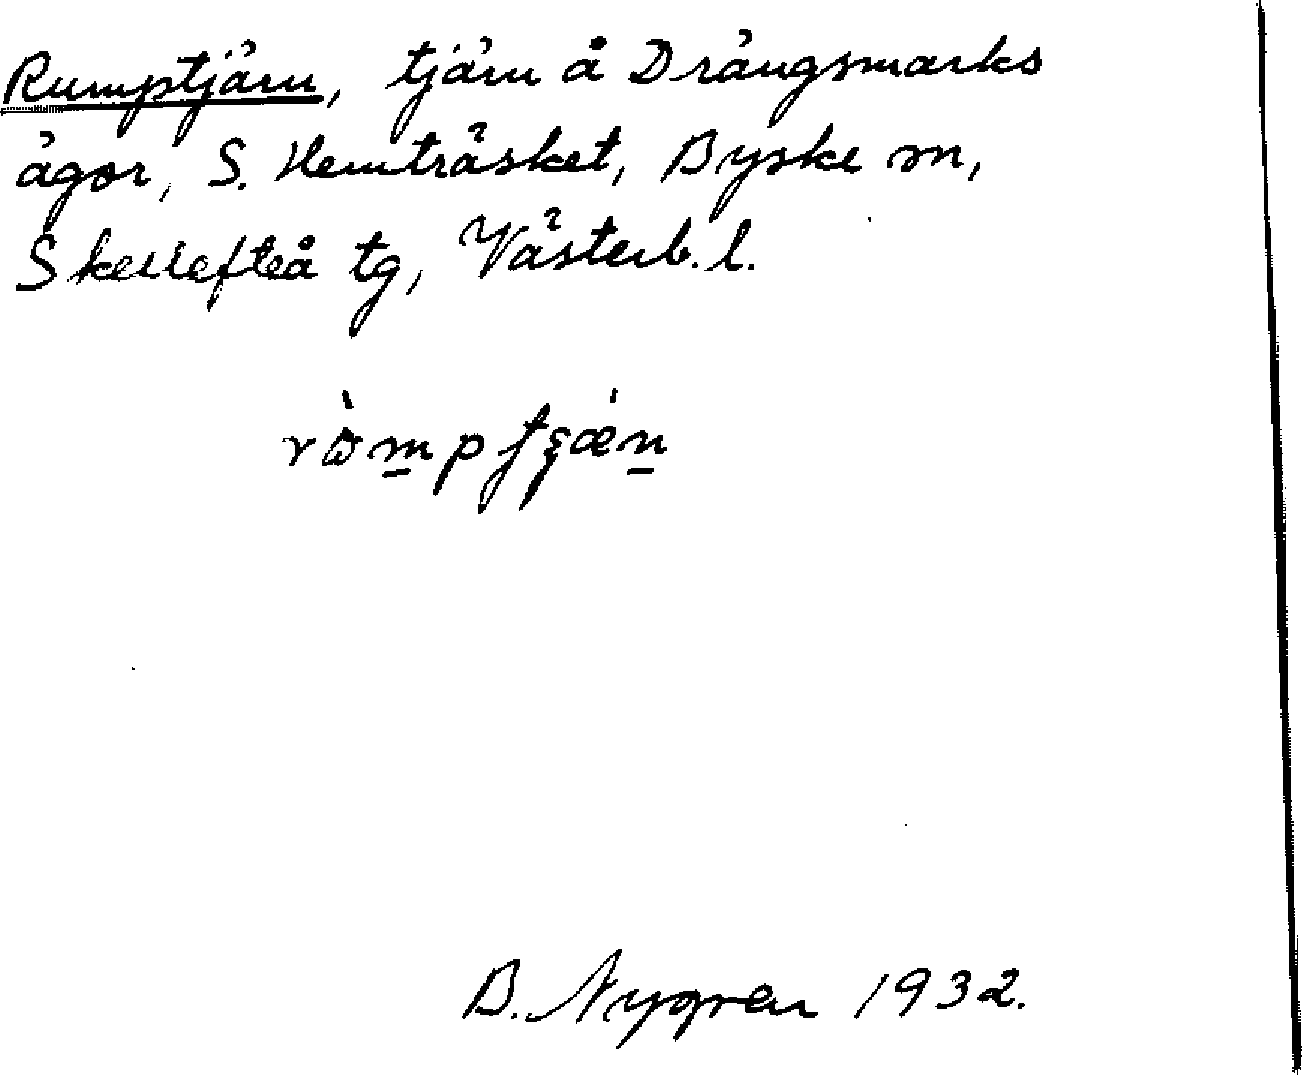 Rumptjärn, tjärn å Drängsmarks
ägor, S. Hemträsket, Byske sn,
Skellefteå tg, Västerb. l.
B. Nygren 1932.